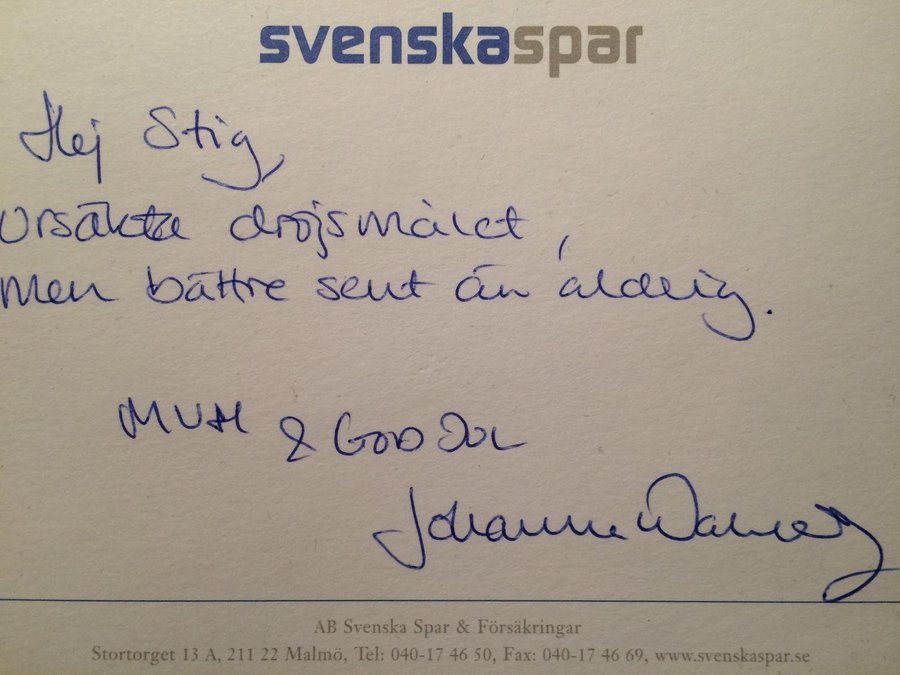 svenskaspar
Hej Stig,
Ursäkta dröjsmålet,
men bättre sent än aldrig.
MVH & GOD JUL
AB Svenska Spar & Försäkringar
Stortorget 13 A, 211 22 Malmö, Tel: 040-17 46 50, Fax: 040-17 46 69, www.svenskaspar.se